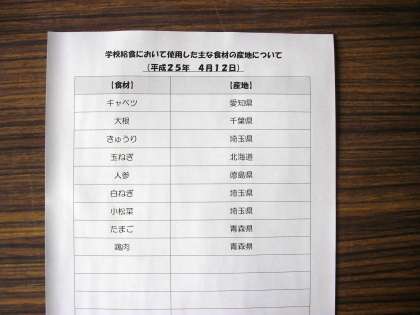 学校給食において使用した主な食材の産地について
（平成２５年　４月１２日）
【食材】　【産地】
キャベツ　愛知県
大根　千葉県
きゅうり　埼玉県
玉ねぎ　北海道
人参　徳島県
白ねぎ　埼玉県
小松菜　埼玉県
たまご　青森県
鶏肉　青森県